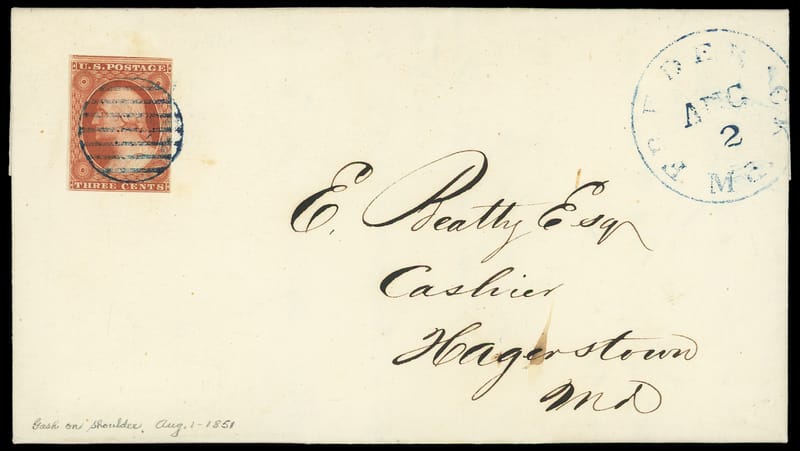 U.S. POSTAGE
THREE CENTS
FREDERICK
AUG
2
Md.
E. Beatty Esq
Cashier
Hagerstown
Md
Gash on shoulder. Aug. 1-1851